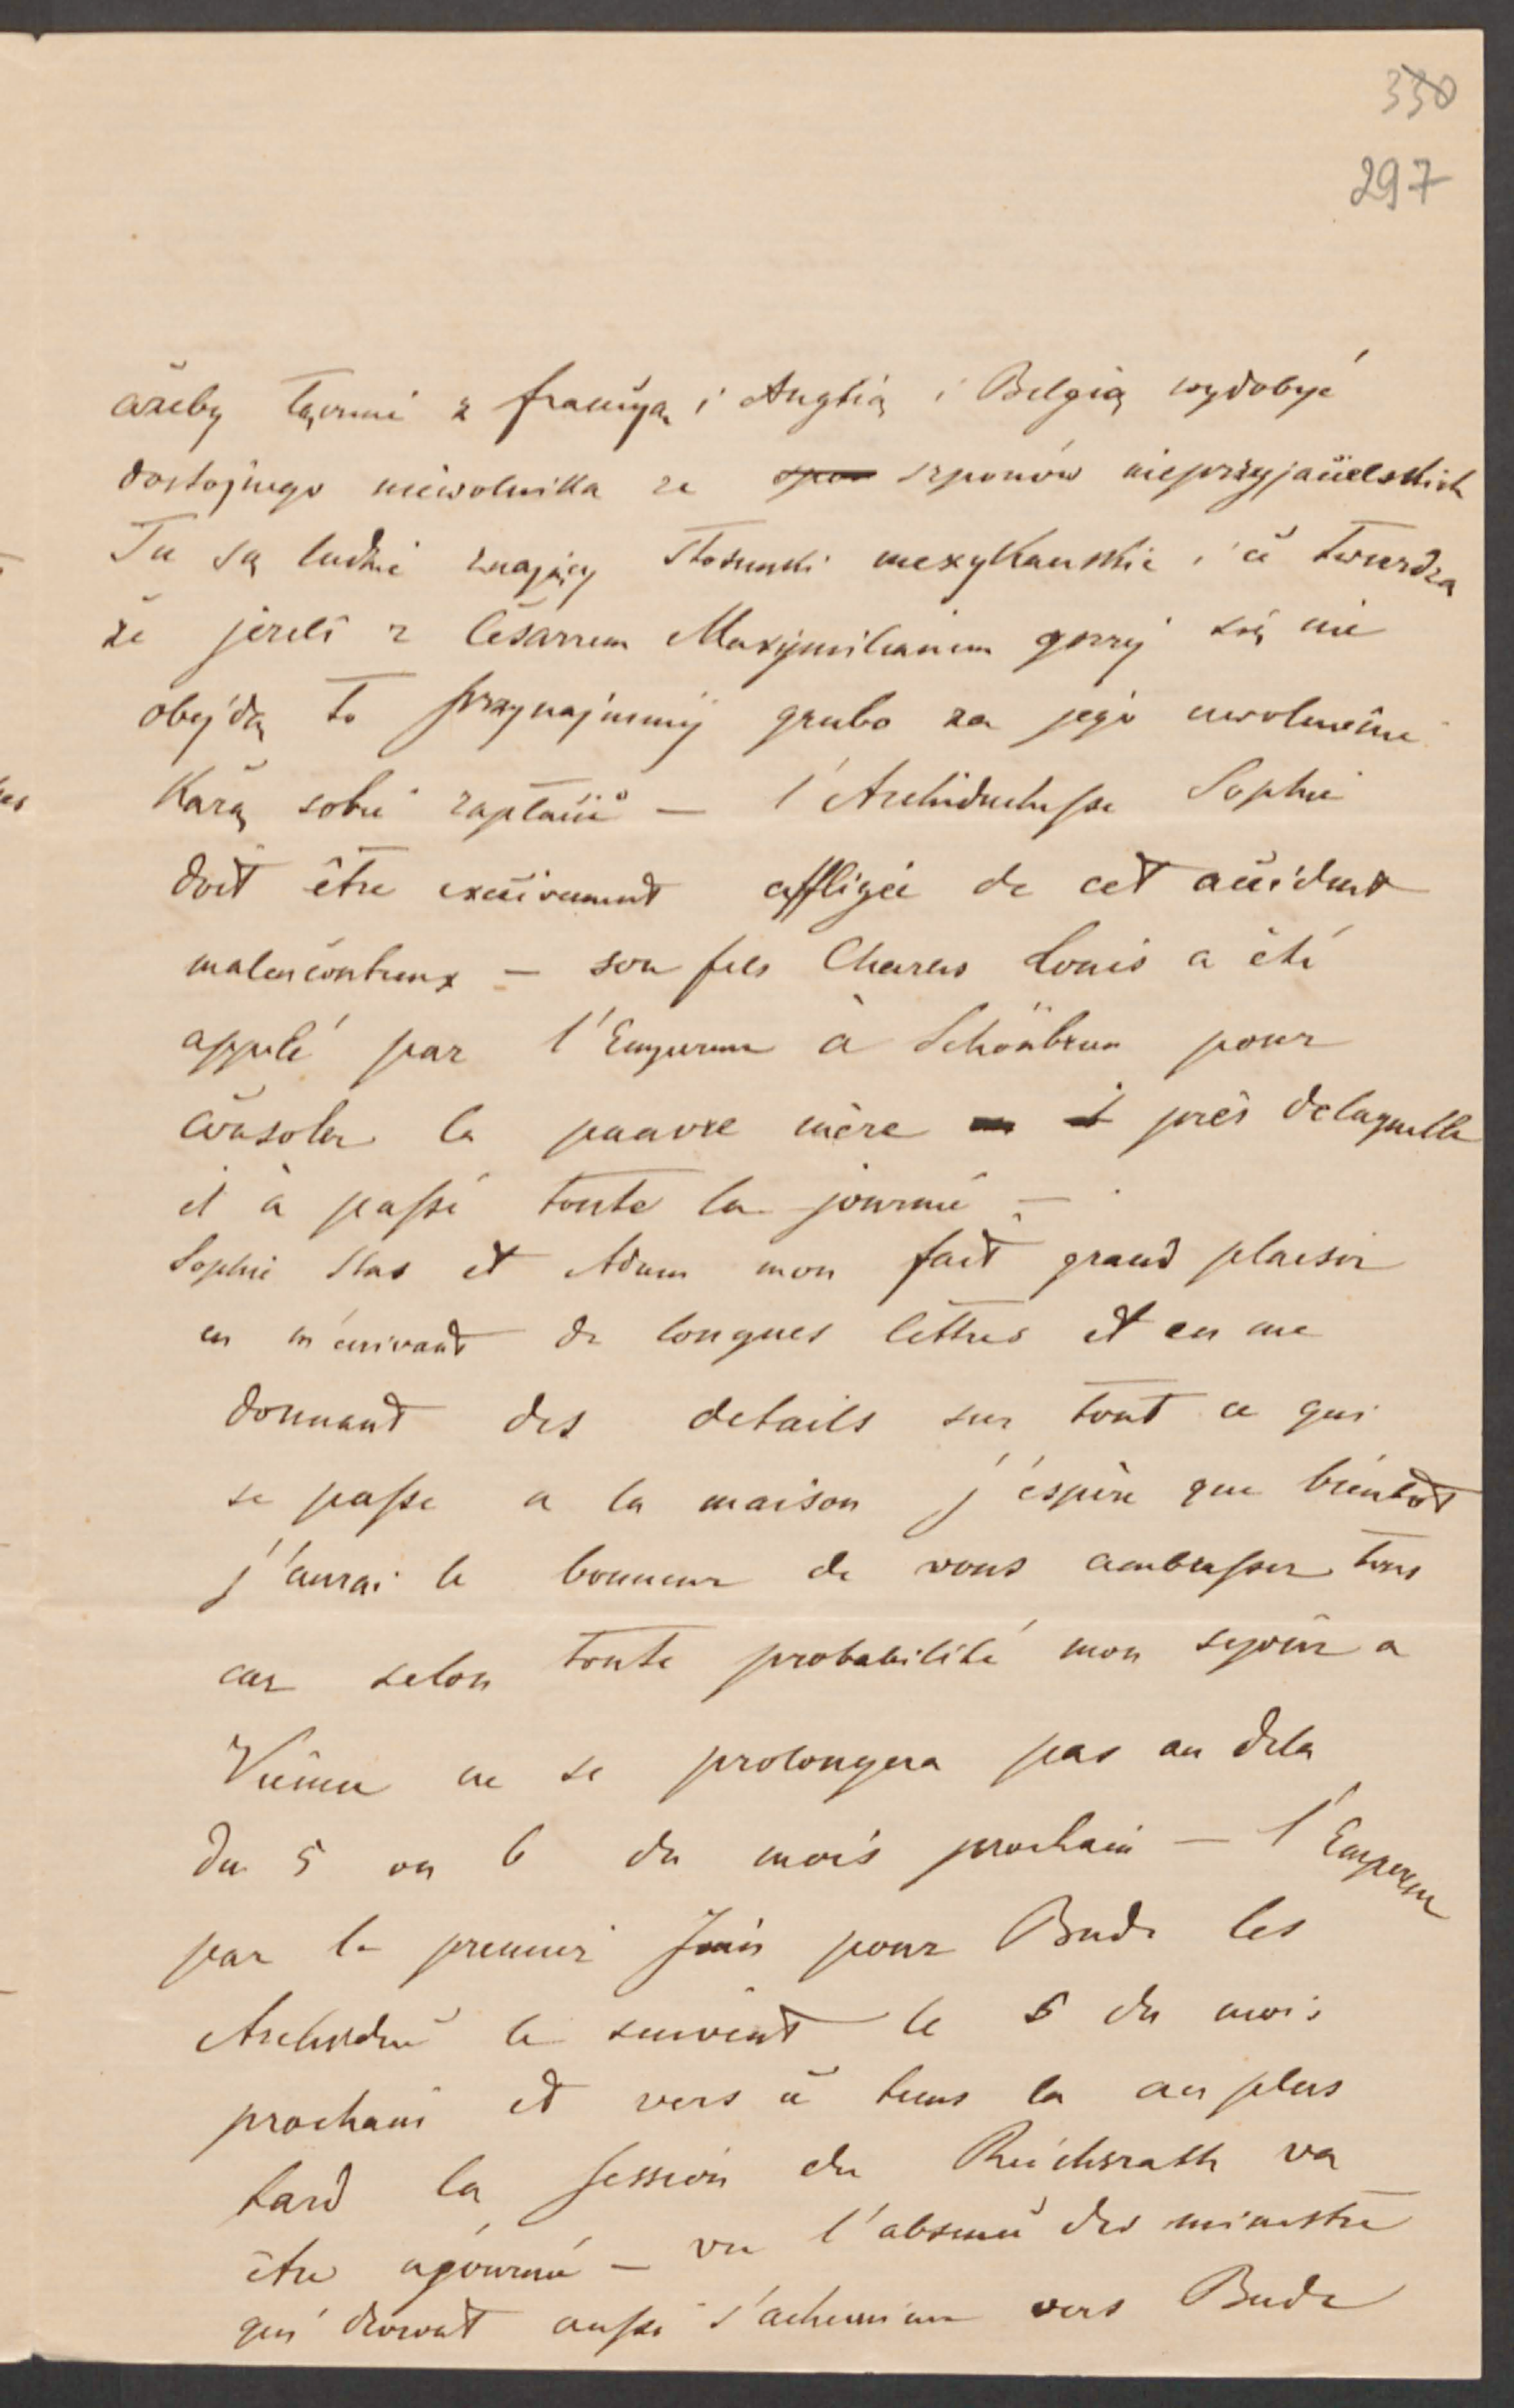 330
297
ażeby łącznie z francyą i Anglią i Belgią wydobyć
dostojnego niewolnika ze spon szponów nieprzyjacielskich
Tu są ludzie znający stosunki mexykanskie i ci twierdzą
że jezeli z Cesarzem Maxymilianem gorzej się nie
obejdą to przynajmniej grubo za jego uwolnienie
Każą sobie zapłacić — l'Archiduchesse Sophie
doit être excécivement affligée de cet accident
malencontreux — son fils Charles Louis a été
appelé par l'Empereur à Schönbrun pour
consoler la pauvre mère près delaquelle
il à passé toute la journé —
Sophie Stas et Adam mon fait grand plaisir
en m'écrivant de longues lettres et en me
donnant des details sur tout ce qui
se passe a la maison j'éspère que bientot
j'aurai le bonneur de vous aembrasser tous
car selon toute probabilité mon sejour a
Vienne ne se prolongera pas au dela
du 5 ou 6 du mois prochain — l'Empereur
par le premier Juin pour Bude les
Archiduc le suivent le 5 du mois
prochain et vers ce tems la au plus
tard la session du Reichsrath va
être ajourné — vu l'absence des ministre
qui devront aussi s'acheminer vers Bude